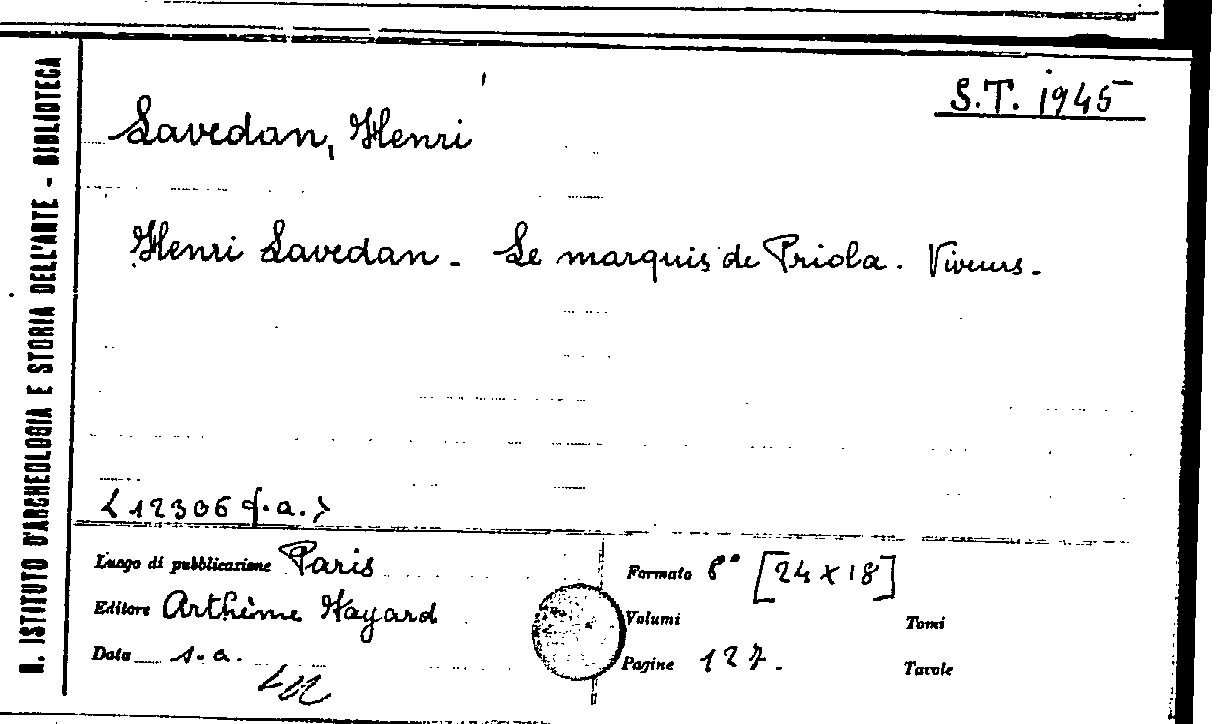 R. ISTITUTO D'ARCHEOLOGIA E STORIA DELL'ARTE - BIBLIOTECA
S.T. 1945
Lavedan, Henri
Henri Lavedan - Le marquis de Priola. Viveurs.
<12306 f.a.>
Luogo di pubblicazione Paris
Editore Arthème Fayard
Data s.a.
Formato 8° [24 x 18]
Volumi
Tomi
Pagine 127.
Tavole